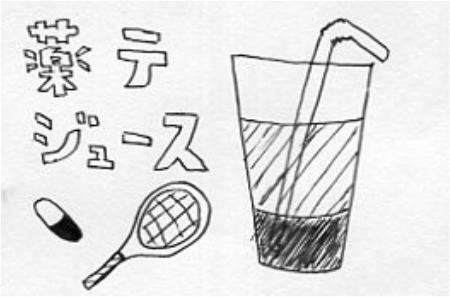 薬テ
ジュース